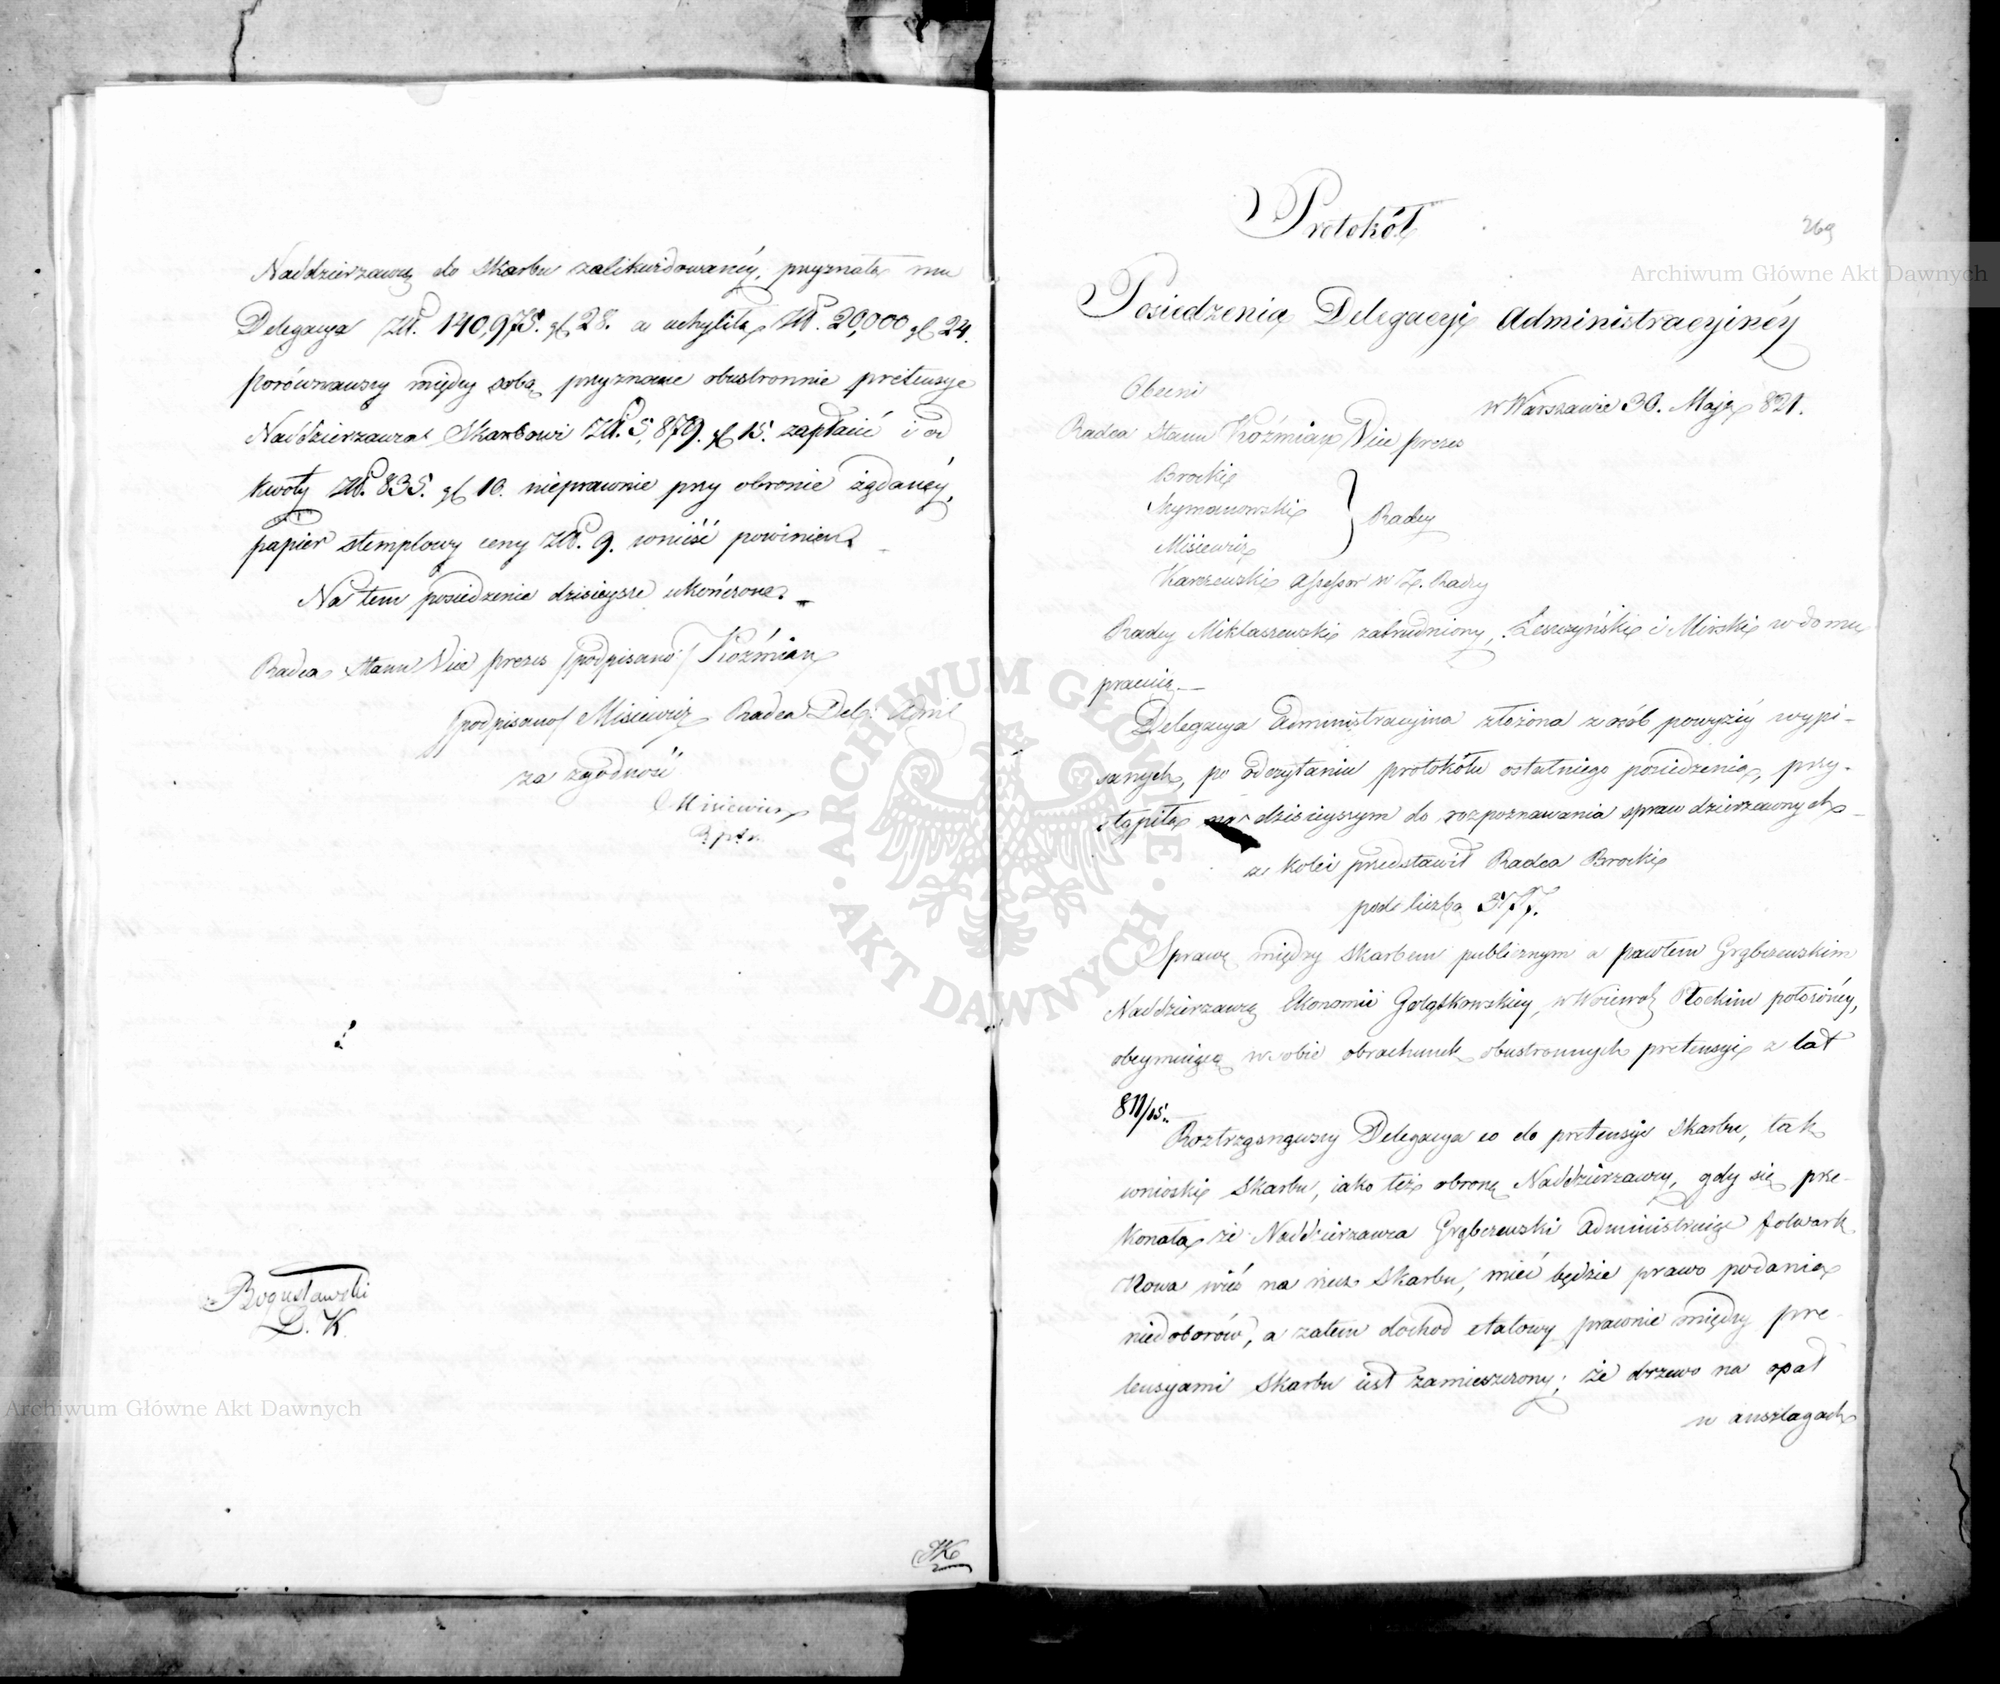 Naddzierzawcę do Skarbu zalikwidowanéy, przyznała mu
Delegacya Złł. 140,975. gł 28. a uchyliła Złł. 20,000 gł 24.
Porównawszy między sobą przyznane obustronnie pretensye
Naddzierzawca Skarbowi Złł. 5,879. gł 15. zapłacić i od
kwoty Złł. 835. gł 10. nieprawnie przy obronie żądanéy,
papier stemplowy ceny Złł. 9. wnieść powinien.
Na tem posiedzenie dzisieysze ukończone.
Radca Stanu Vice prezes /podpisano/ Koźmian
/podpisano/ Misiewicz Radca Del: Adm:
za zgodność
Misiewicz
Bogusławski
D. K.
Protokół
269
Posiedzenia Delegacyi Administracyinéy
Obecni
w Warszawie 30. Maja 821.
Radca Stanu Koźmian Vice prezes
Brocki
Szymanowski
Radcy
Misiewicz
Karczewski Assessor w Z. Radcy
Radcy Miklaszewski zatrudniony, Leszczyński i Mirski w domu
pracuią.
Delegacya Administracyina złożona z osób powyżéy wypi-
sanych, po odczytaniu protokółu ostatniego posiedzenia, przy-
stąpiła na dzisieyszym do rozpoznawania spraw dzierzawnych
z kolei przedstawił Radca Brocki
pod liczbą 577.
Sprawę między Skarbem publicznym a Pawłem Grąbczewskim
Naddzierzawcą Ekonomii Gołąbkowskiey, w Woiewod: Płockim położonéy,
obeymuiącą w sobie obrachunek obustronnych pretensyi z lat
811/15.
Roztrząsnąwszy Delegacya co do pretensyi Skarbu, tak
wnioski Skarbu, iako też obronę Naddzierzawcy, gdy się prze-
konała że Naddzierzawca Grąbczewski administruiąc folwark
Nowa wieś na rzecz Skarbu, mieć będzie prawo podania
niedoborów, a zatem dochod etatowy prawnie między pre-
tensyami Skarbu iest zamieszczony; że drzewo na opał
w anszlagach